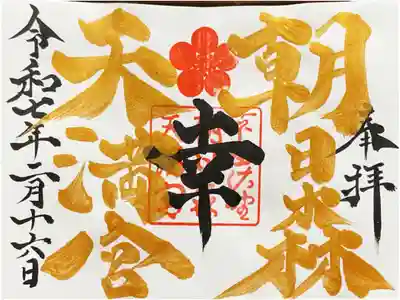 奉拝
朝日森
幸
天満宮
令和七年二月十六日